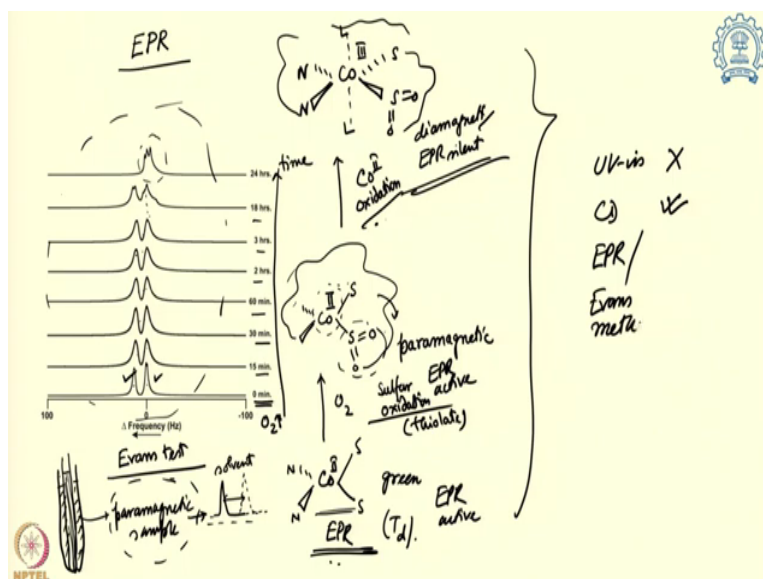 EPR
24 hrs.
18 hrs.
3 hrs.
2 hrs.
60 min.
30 min.
15 min.
0 min.
100
0
-100
Δ Frequency (Hz)
time
O₂↑
Evans test
paramagnetic
sample
solvent
L
III
N
Co
S
N
S=O
O
L
diamagnetic
EPR silent
Co II
oxidation
II
S
Co
S=O
O
paramagnetic
EPR
active
O₂
sulfur
oxidation
(thiolate)
N
Co II
S
N
S
EPR
green
(Td).
EPR
active
UV-vis X
CD
EPR/
Evans
NPTEL